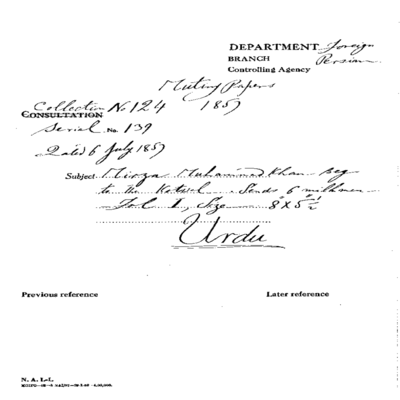 DEPARTMENT Foreign
BRANCH Persian
Controlling Agency
Mutiny Papers
Collection No 124 1857
CONSULTATION
Serial No. 139
Dated 6 July 1857
Subject Mirza Muhammad Khan Beg
to the Kotwal. Sends 6 milkmen
Fol 1, Size 8 x 5 1/2
Urdu
Previous reference Later reference
N. A. I.-1.